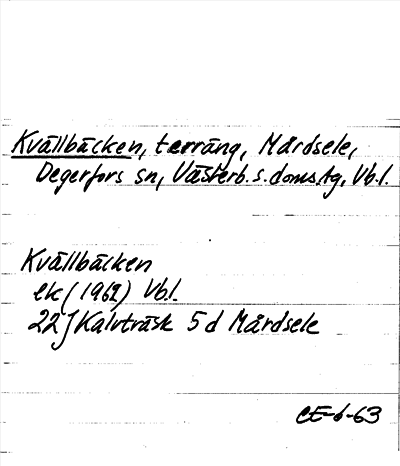 Kvällbäcken, terräng, Mårdsele,
Degerfors sn, Västerb. s. doms.tg, Vb.l.
Kvällbäcken
ek (1961) Vb.l.
22J Kalvträsk 5d Mårdsele
CE-6-63